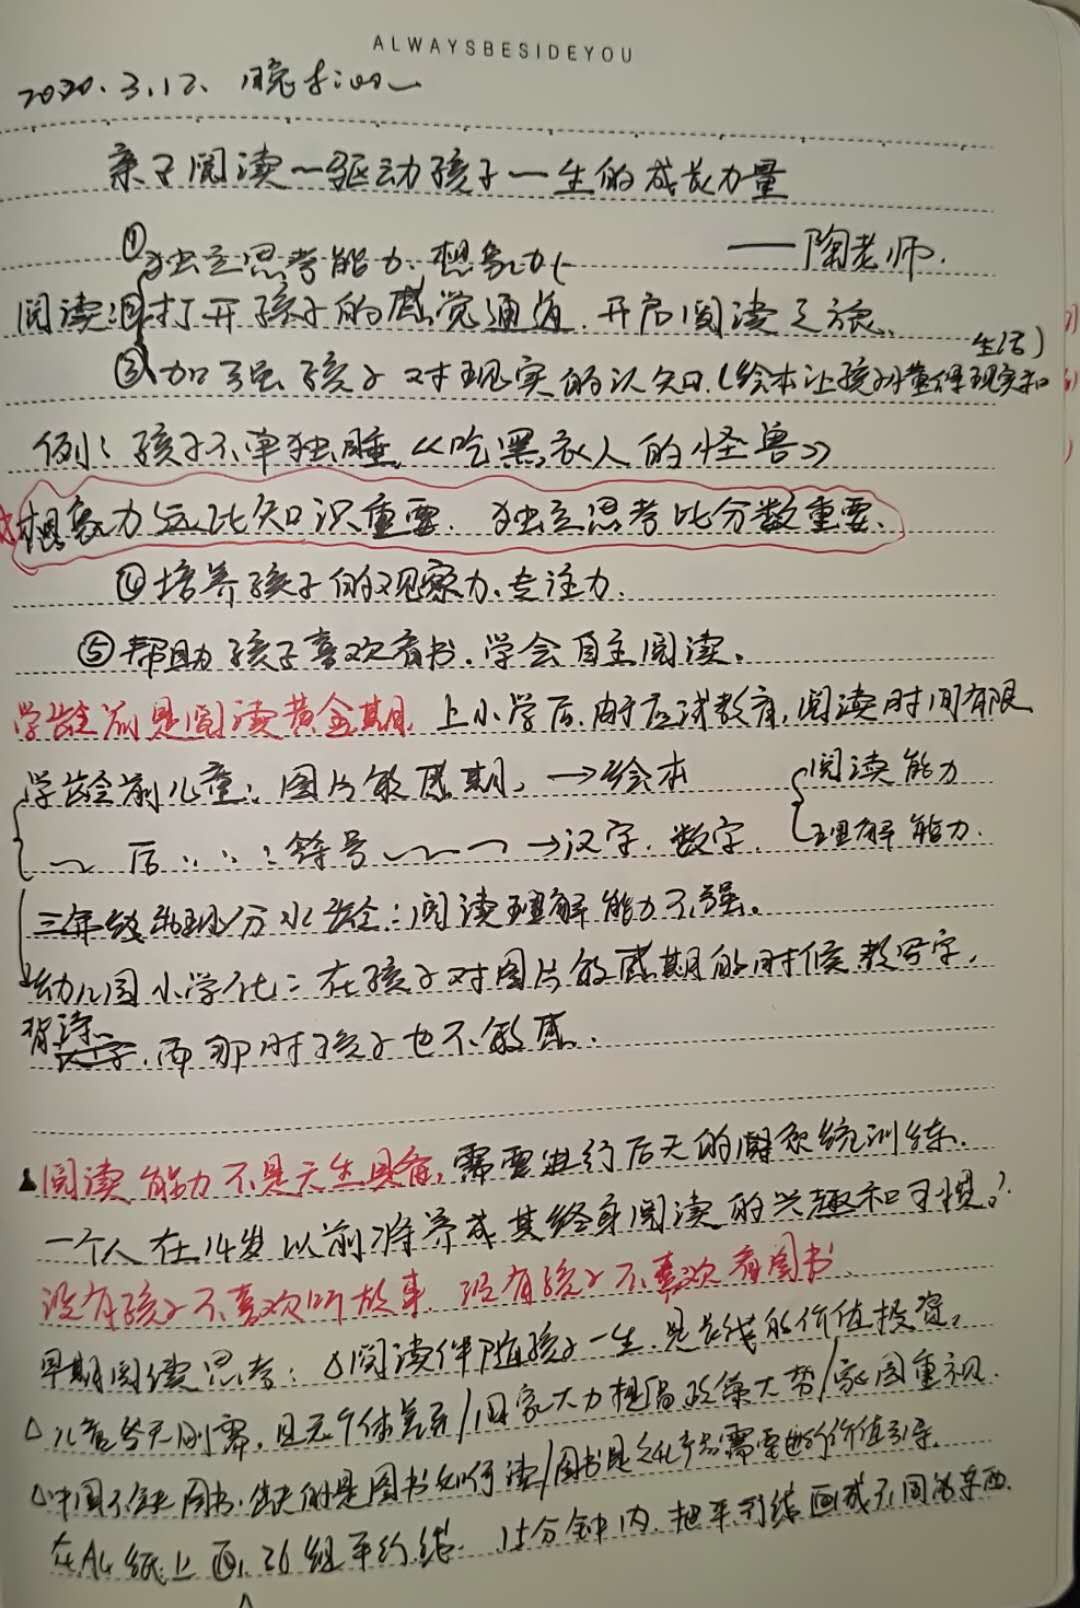 ALWAYSBESIDEYOU
2020.3.12. 晚
亲子阅读—驱动孩子一生的成长力量
①独立思考能力、想象力 ——陶老师.
阅读 打开孩子的感觉通道.开启阅读之旅.
③加强孩子对现实的认知.(绘本让孩子懂得现实和生活)
例:孩子不单独睡.《吃黑衣人的怪兽》
想象力远比知识重要.独立思考比分数重要.
④培养孩子的观察力、专注力.
⑤帮助孩子喜欢看书.学会自主阅读.
学龄前是阅读黄金期.上小学后.由于应试教育,阅读时间有限
学龄前儿童:图片敏感期,→绘本 阅读能力
后 :符号 →汉字.数字. 理解能力.
三年级出现分水岭:阅读理解能力不强。
幼儿园小学化:在孩子对图片敏感期的时候教写字,
背诗.而那时孩子也不敏感.
▲阅读能力不是天生具备,需要进行后天的 系统训练.
一个人在14岁以前将养成其终身阅读的兴趣和习惯?
没有孩子不喜欢听故事.没有孩子不喜欢看图书.
早期阅读思考:△阅读伴随孩子一生.是长线的价值投资。
△儿童 刚需,且无个体差异/国家大力提倡政策大势/家园重视.
△中国不缺图书.缺的是图书如何读/图书是文化产品需要 价值引导.
在A4纸上画26组平行线.15分钟内.把平行线画成不同的东西.